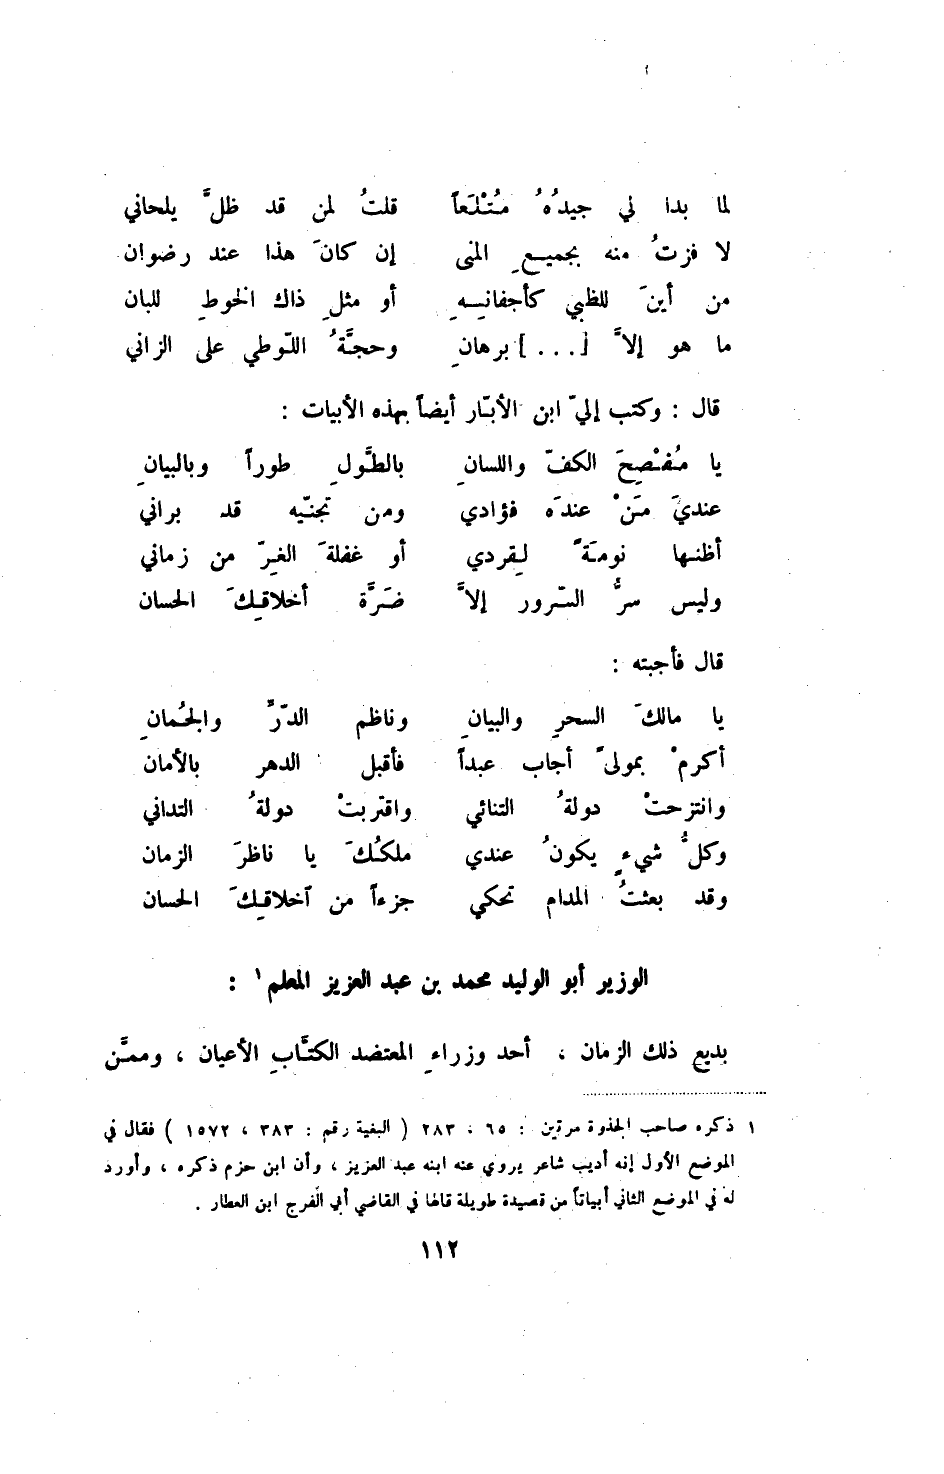 لما بدا لي جيدُهُ مُتْلَعاً قلتُ لمن قد ظلَّ يلحاني
لا فزتُ منه بجميعِ المنى إن كانَ هذا عند رضوان
من أينَ للظبي كأجفانِهِ أو مثلِ ذاك الخوطِ للبان
ما هو إلاَّ [...] برهانِ وحجَّةُ اللّوطي على الزاني
قال : وكتب إليّ ابن الأبّار أيضاً بهذه الأبيات :
يا مُفْصِحَ الكفّ واللسانِ بالطَّولِ طوراً وبالبيانِ
عنديَ مَنْ عندَه فؤادي ومن تجنّيه قد براني
أظنها نومَةً لِقردي أو غفلةَ الغِرّ من زماني
وليس سرُّ السّرور إلاَّ ضَرَّة أخلاقِكَ الحسان
قال فأجبته :
يا مالكَ السحرِ والبيانِ وناظم الدّرِّ والجُمانِ
أكرمْ بمولىً أجاب عبداً فأقبل الدهر بالأمان
وانتزحتْ دولةُ التنائي واقتربتْ دولةُ التداني
وكلُّ شيءٍ يكونُ عندي ملكُكَ يا ناظرَ الزمان
وقد بعثتُ المدام تحكي جزءاً من أخلاقِكَ الحسان
الوزير أبو الوليد محمد بن عبد العزيز المعلم ١ :
بديع ذلك الزمان ، أحد وزراءِ المعتضد الكتَّابِ الأعيان ، وممَّن
١ ذكره صاحب الجذوة مرتين : ٦٥ ، ٢٨٣ ( البغية رقم : ٣٨٣ ، ١٥٧٢ ) فقال في
الموضع الأول إنه أديب شاعر يروي عنه ابنه عبد العزيز ، وأن ابن حزم ذكره ، وأورد
له في الموضع الثاني أبياتاً من قصيدة طويلة قالها في القاضي أبي الفرج ابن العطار .
١١٢